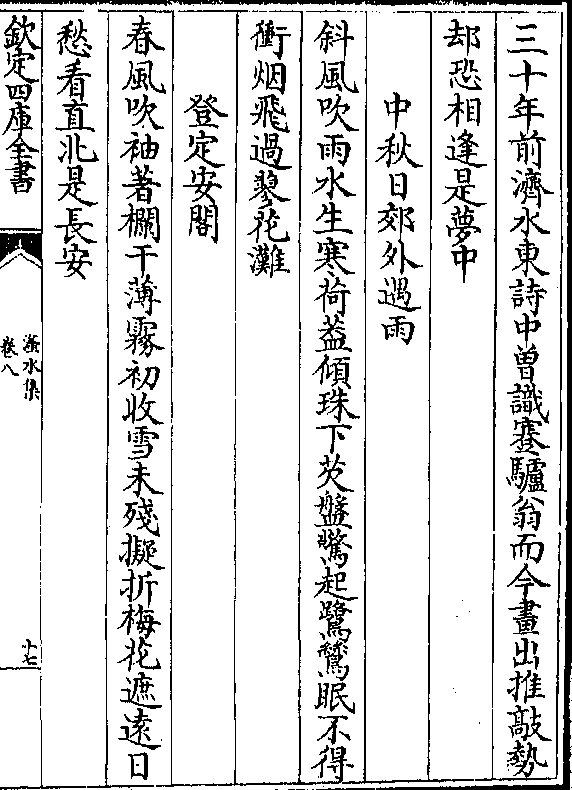 三十年前濟水東詩中曽識蹇驢翁而今畫出推敲勢
却恐相逢是夢中
中秋日郊外遇雨
斜風吹雨水生寒荷葢傾珠下芡盤驚起鷺鷥眠不得
衝烟飛過蓼花灘
登定安閣
春風吹袖著欄干薄霧初收雪未殘擬折梅花遮遠日
愁看直北是長安
欽定四庫全書
滏水集
卷八
十七